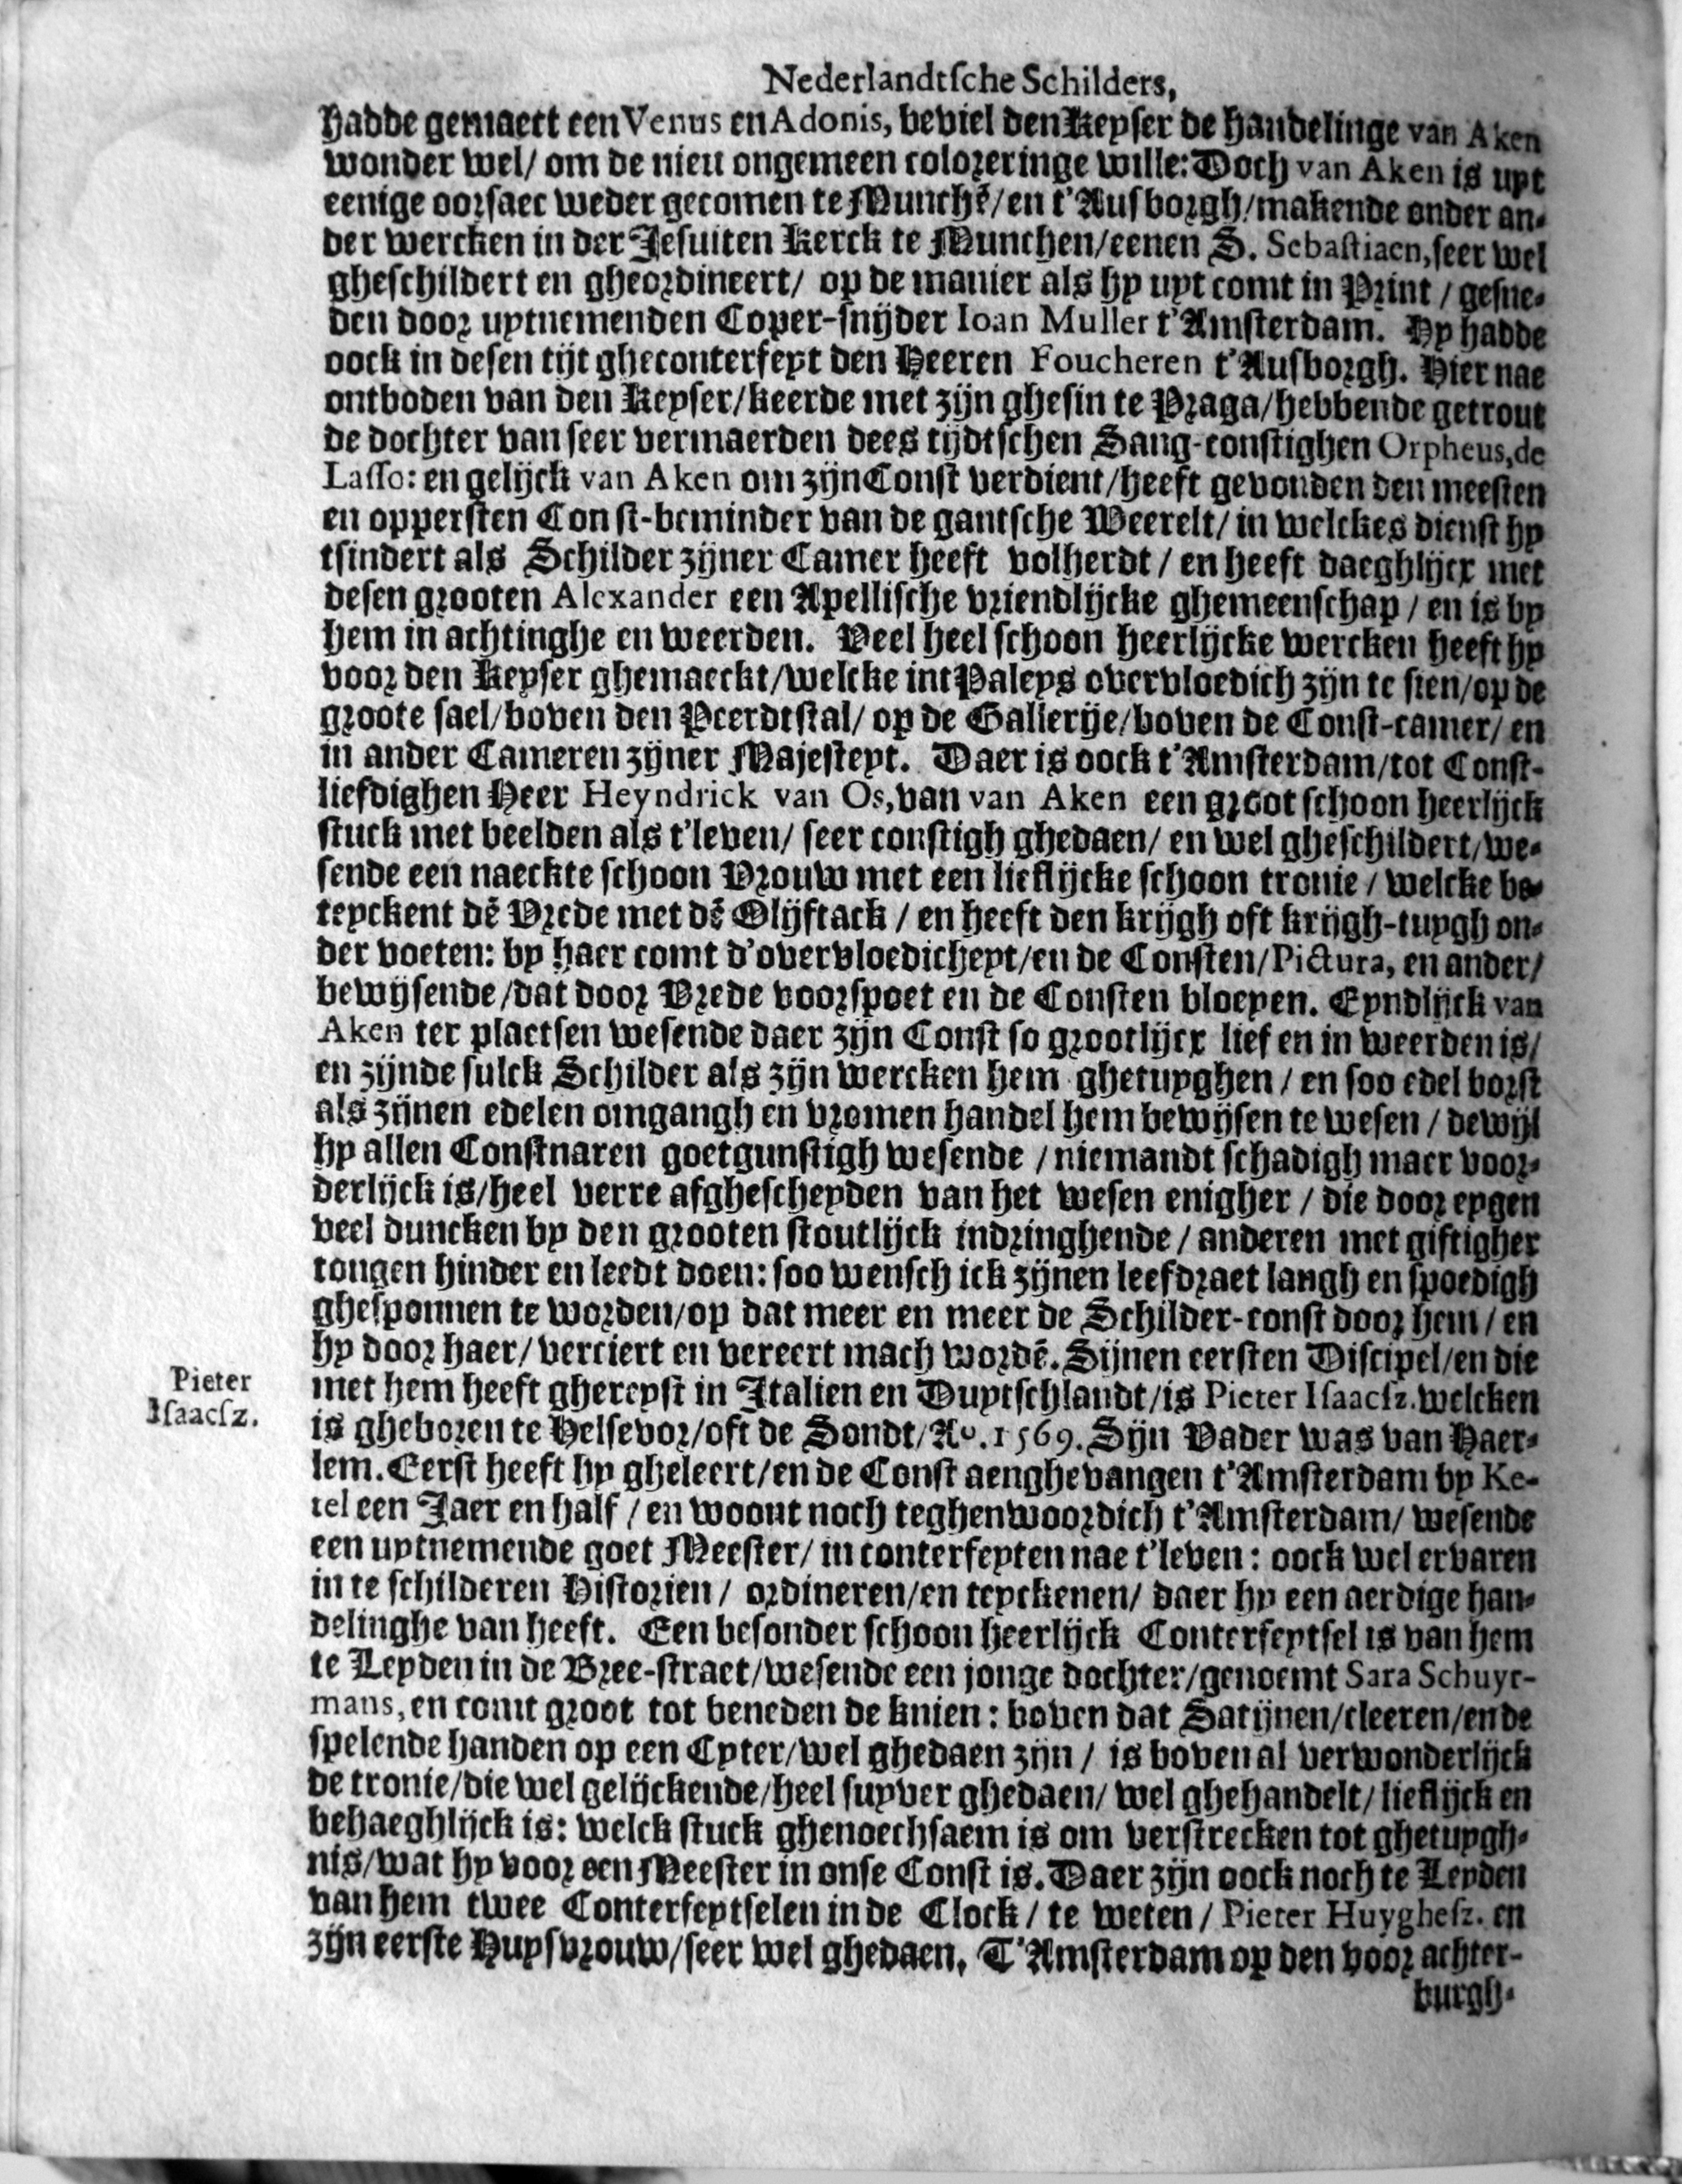 Nederlandtſche Schilders,
hadde gemaect een Venus en Adonis, beviel den Keyſer de handelinge van Aken
wonder wel/ om de nieu ongemeen coloreringe wille: Doch van Aken is uyt
eenige oorſaec weder gecomen te Munchē/ en t'Auſborgh/ makende onder an-
der wercken in der Jeſuiten Kerck te Munchen/ eenen S. Sebaſtiaen, ſeer wel
gheſchildert en gheordineert/ op de manier als hy uyt comt in Print / geſne-
den door uytnemenden Coper-ſnijder Ioan Muller t'Amſterdam. Hy hadde
oock in deſen tijt gheconterfeyt den Heeren Foucheren t'Auſborgh. Hier nae
ontboden van den Keyſer/ keerde met zijn gheſin te Praga/ hebbende getrout
de dochter van ſeer vermaerden dees tijdtſchen Sang-conſtighen Orpheus, de
Laſſo: en gelijck van Aken om zijn Conſt verdient/ heeft gevonden den meeſten
en opperſten Conſt-beminder van de gantſche Weerelt/ in welckes dienſt hy
tſindert als Schilder zijner Camer heeft volherdt / en heeft daeghlijcx met
deſen grooten Alexander een Apelliſche vriendlijcke ghemeenſchap / en is by
hem in achtinghe en weerden. Veel heel ſchoon heerlijcke wercken heeft hy
voor den Keyſer ghemaeckt/ welcke int Paleys overvloedich zijn te ſien/ op de
groote ſael/ boven den Peerdtſtal/ op de Gallerije/ boven de Conſt-camer/ en
in ander Cameren zijner Majeſteyt. Daer is oock t'Amſterdam/ tot Conſt-
liefdighen Heer Heyndrick van Os, van van Aken een groot ſchoon heerlijck
ſtuck met beelden als t'leven/ ſeer conſtigh ghedaen/ en wel gheſchildert/ we-
ſende een naeckte ſchoon Vrouw met een lieflijcke ſchoon tronie / welcke be-
teyckent dē Vrede met dē Olijftack / en heeft den krijgh oft krijgh-tuygh on-
der voeten: by haer comt d'overvloedicheyt/ en de Conſten/ Pictura, en ander/
bewijſende/ dat door Vrede voorſpoet en de Conſten bloeyen. Eyndlijck van
Aken ter plaetſen weſende daer zijn Conſt ſo grootlijcx lief en in weerden is/
en zijnde ſulck Schilder als zijn wercken hem ghetuyghen / en ſoo edel borſt
als zijnen edelen omgangh en vromen handel hem bewijſen te weſen / dewijl
hy allen Conſtnaren goetgunſtigh weſende / niemandt ſchadigh maer voor-
derlijck is/ heel verre afgheſcheyden van het weſen enigher / die door eygen
veel duncken by den grooten ſtoutlijck indringhende / anderen met giftigher
tongen hinder en leedt doen: ſoo wenſch ick zijnen leefdraet langh en ſpoedigh
gheſponnen te worden/ op dat meer en meer de Schilder-conſt door hem / en
hy door haer/ verciert en vereert mach wordē. Sijnen eerſten Diſcipel/ en die
Pieter
Iſaacſz.
met hem heeft ghereyſt in Italien en Duytſchlandt/ is Pieter Iſaacſz. welcken
is gheboren te Helſevor/ oft de Sondt/ Ao. 1569. Sijn Vader was van Haer-
lem. Eerſt heeft hy gheleert/ en de Conſt aenghevangen t'Amſterdam by Ke-
tel een Jaer en half / en woont noch teghenwoordich t'Amſterdam/ weſende
een uytnemende goet Meeſter/ in conterfeyten nae t'leven: oock wel ervaren
in te ſchilderen Hiſtorien / ordineren/ en teyckenen/ daer hy een aerdige han-
delinghe van heeft. Een beſonder ſchoon heerlijck Conterfeytſel is van hem
te Leyden in de Bree-ſtraet/ weſende een jonge dochter/ genoemt Sara Schuyr-
mans, en comt groot tot beneden de knien: boven dat Satijnen/ cleeren/ en de
ſpelende handen op een Cyter/ wel ghedaen zijn / is boven al verwonderlijck
de tronie/ die wel gelijckende/ heel ſuyver ghedaen/ wel ghehandelt/ lieflijck en
behaeghlijck is: welck ſtuck ghenoechſaem is om verſtrecken tot ghetuygh-
nis/ wat hy voor een Meeſter in onſe Conſt is. Daer zijn oock noch te Leyden
van hem twee Conterfeytſelen in de Clock / te weten / Pieter Huygheſz. en
zijn eerſte Huyſvrouw/ ſeer wel ghedaen, T'Amſterdam op den voor achter-
burgh-